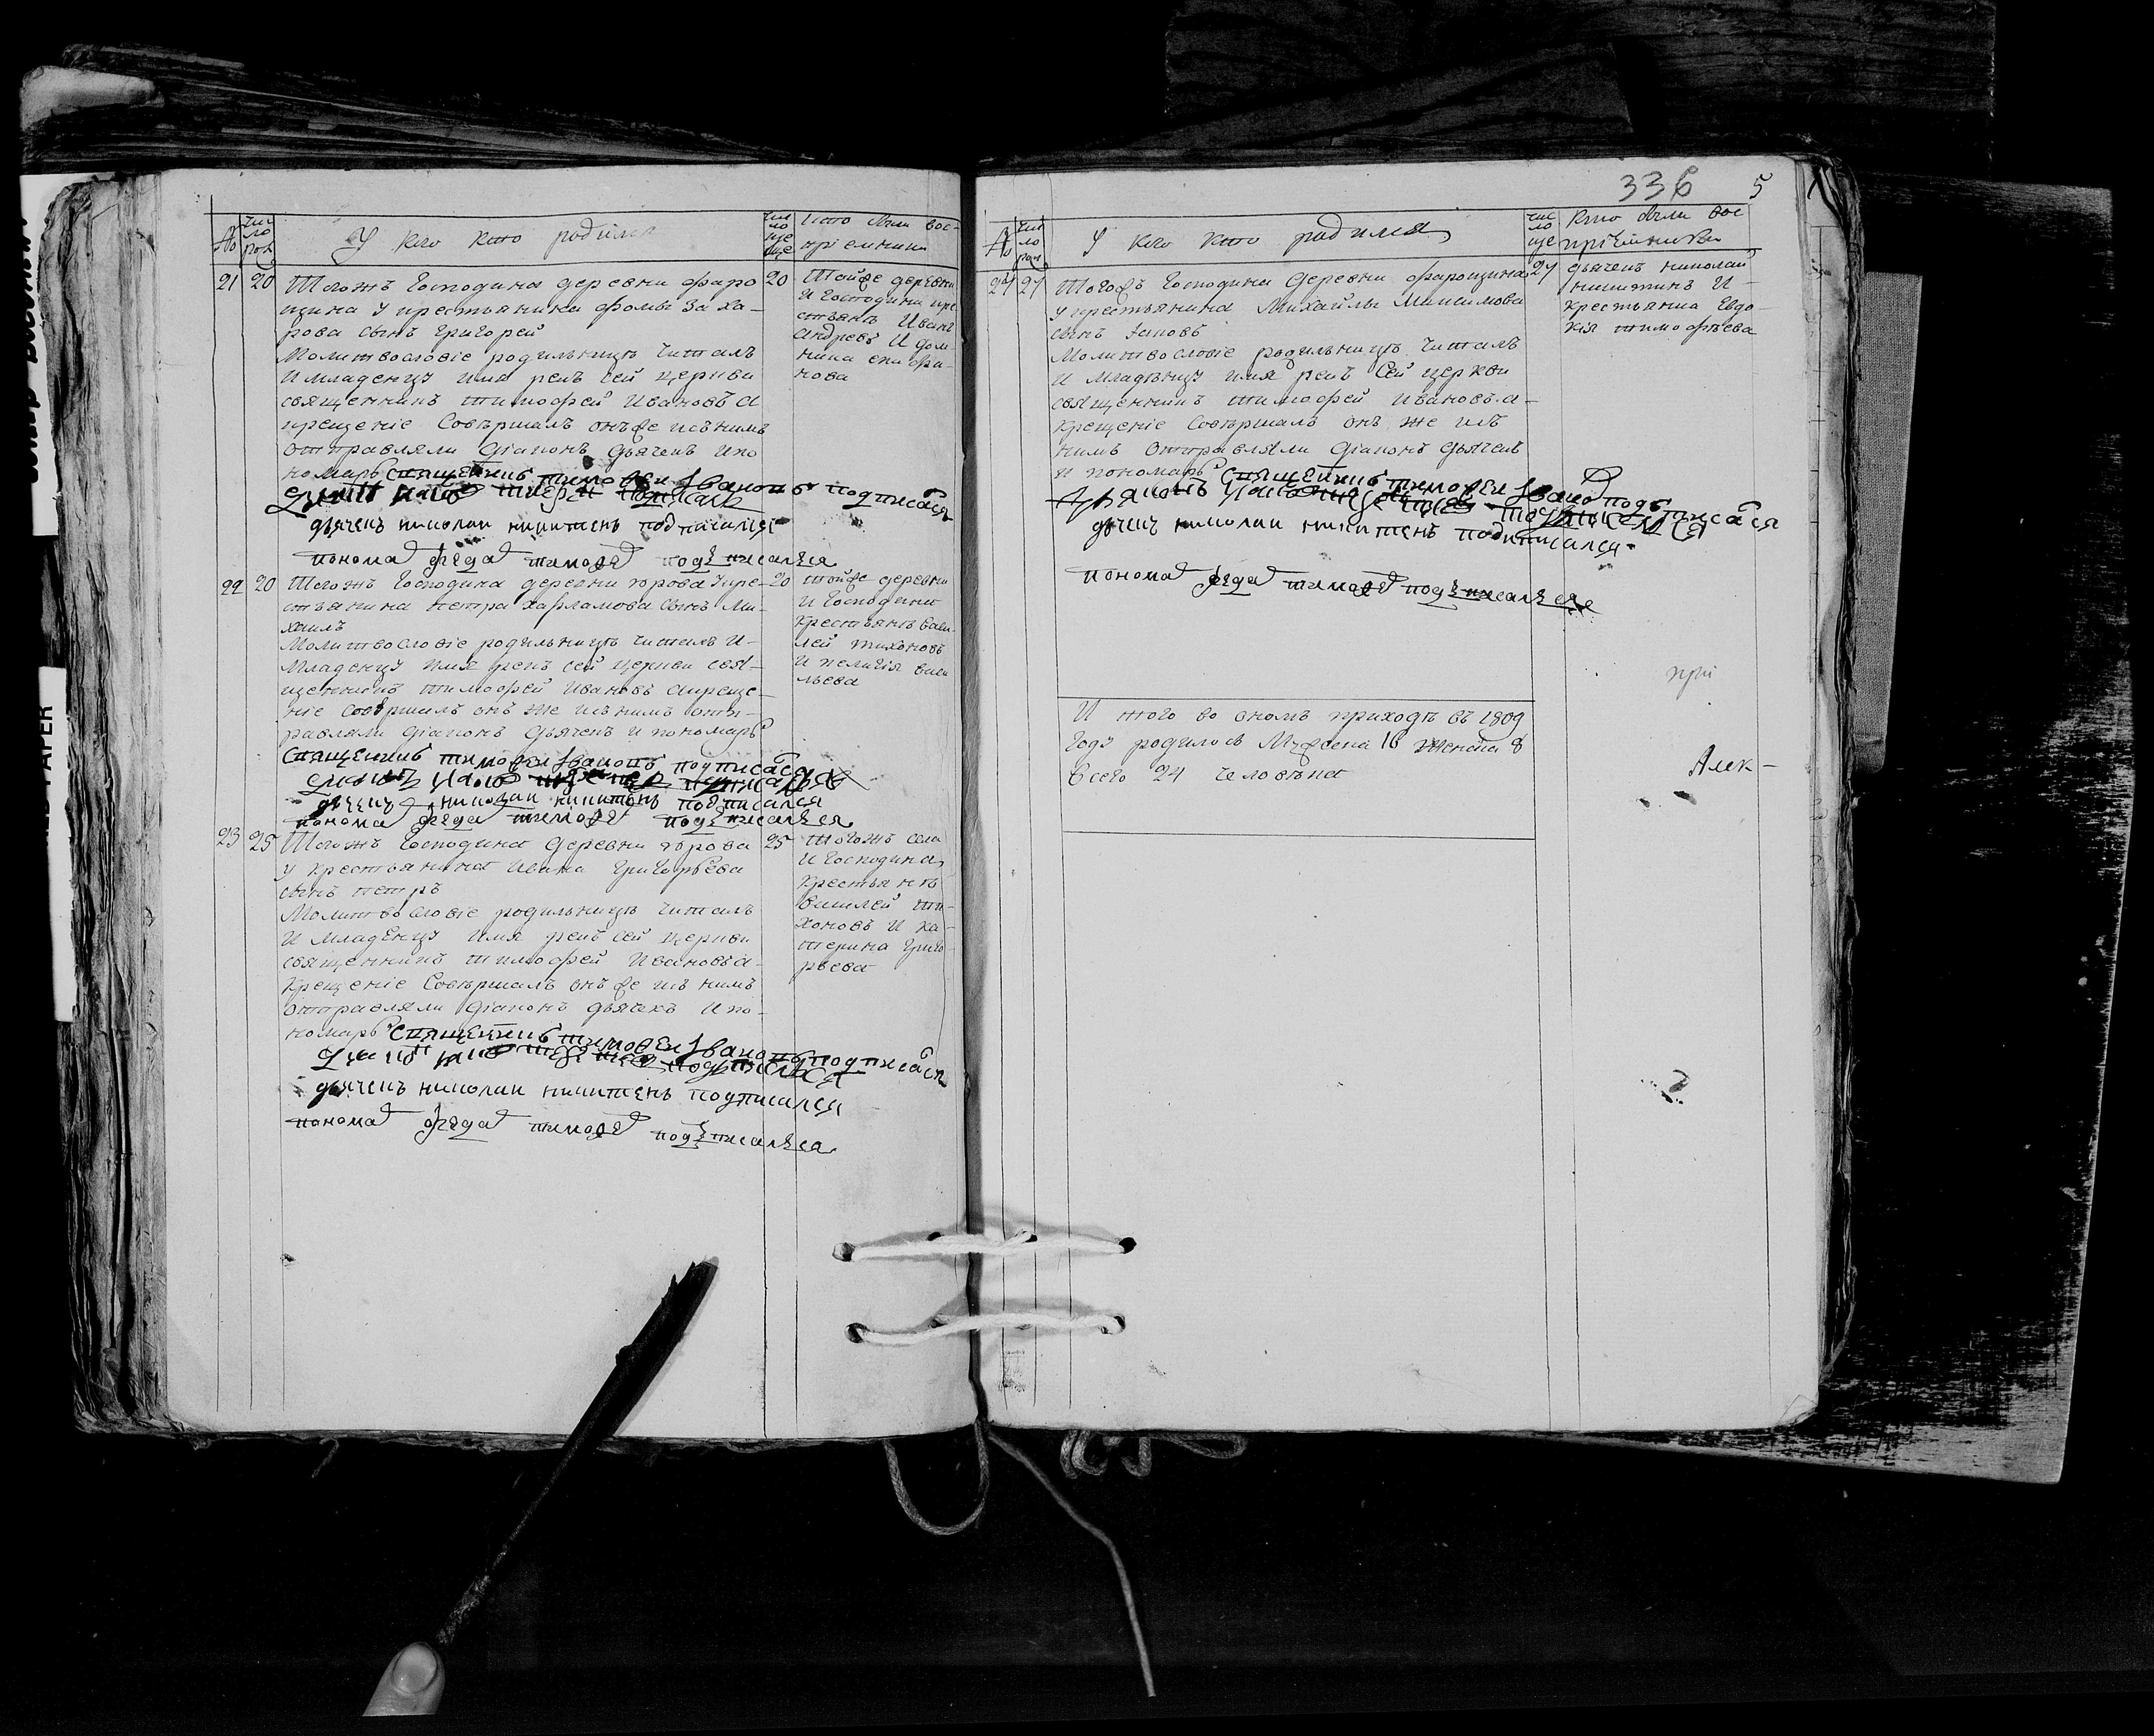 №
число рож
У кого кто родился
число креще
Кто были вос-
приемники
21 20
Тогожъ Господина деревни фаро
щина у крестьянина фомы Заха-
рова сынъ Григорей
Молитвословіе родильницѣ читалъ
И младенцу имя рекъ сей церкви
священникъ тимофей Ивановъ а
крещеніе Совѣршалъ онъ же исънимъ
отправляли діаконъ дьячекъ ипо
номарь
священникъ тимофеи Ивановъ подписася
дьячекъ николаи никитенъ подписался
понома федо тимофе подписался
20
Тойже деревни
И Господина кре
стьянъ Иванъ
андреевъ И дом-
ника
22 20
Тогожъ Господина деревни Юрова укре-
стьянина петра харламова сынъ Ми-
хаилъ
Молитвословіе родильницѣ читалъ И-
Младенцу имя рекъ сей церкви свя-
щенникъ тимофей Ивановъ акреще-
ніе совѣршалъ онъ же исънимъ отп-
равляли діаконъ дьячекъ и пономарь
священникъ тимофеи Ивановъ подписася
дьячекъ николаи никитенъ подписался
понома федо тимофе подписался
20
тойже деревни
И Господина
крестьянъ васи-
лей тихоновъ
И пелагія васи
льева
23 25
Тогожъ Господина деревни Юрова
у крестьянина Ивана Григорьева
сынъ петръ
Молитвословіе родильницѣ читалъ
И младенцу имя рекъ сей церкви
священникъ тимофей Ивановъ а-
крещеніе Совѣршалъ онъ же исъ нимъ
отправляли діаконъ дьячекъ ипо-
номарь
священникъ тимофеи Ивановъ подписася
дьячекъ николаи никитенъ подписался
понома федо тимофе подписался
25
тогожъ села
И Господина
крестьянъ
василей ти-
хоновъ И ка-
терина Григо-
рьева
336 5
№
число рож
У кого кто родился
число кре
Кто были вос
пріемники
24 27
Тогожъ Господина деревни фарощина
у крестьянина Михайлы Максимова
сынъ Іаковъ
Молитвословіе родильницѣ читалъ
И младѣнцу имя рекъ Сей церкви
священникъ тимофей Ивановъ а-
крещеніе Совѣршалъ онъ же исъ
нимъ отправляли діаконъ дьячекъ
и пономарь
священникъ тимофеи Ивано подписася
дьячекъ николаи никитенъ подписался
понома федо тимофе подписался
27
дьячекъ николай
никитинъ И
крестьянка Евдо-
кія тимофѣева
И того во ономъ приходѣ въ 1809
Году родилось Мужеска 16 женска 8
Всего 24 человѣка
при
Алек-